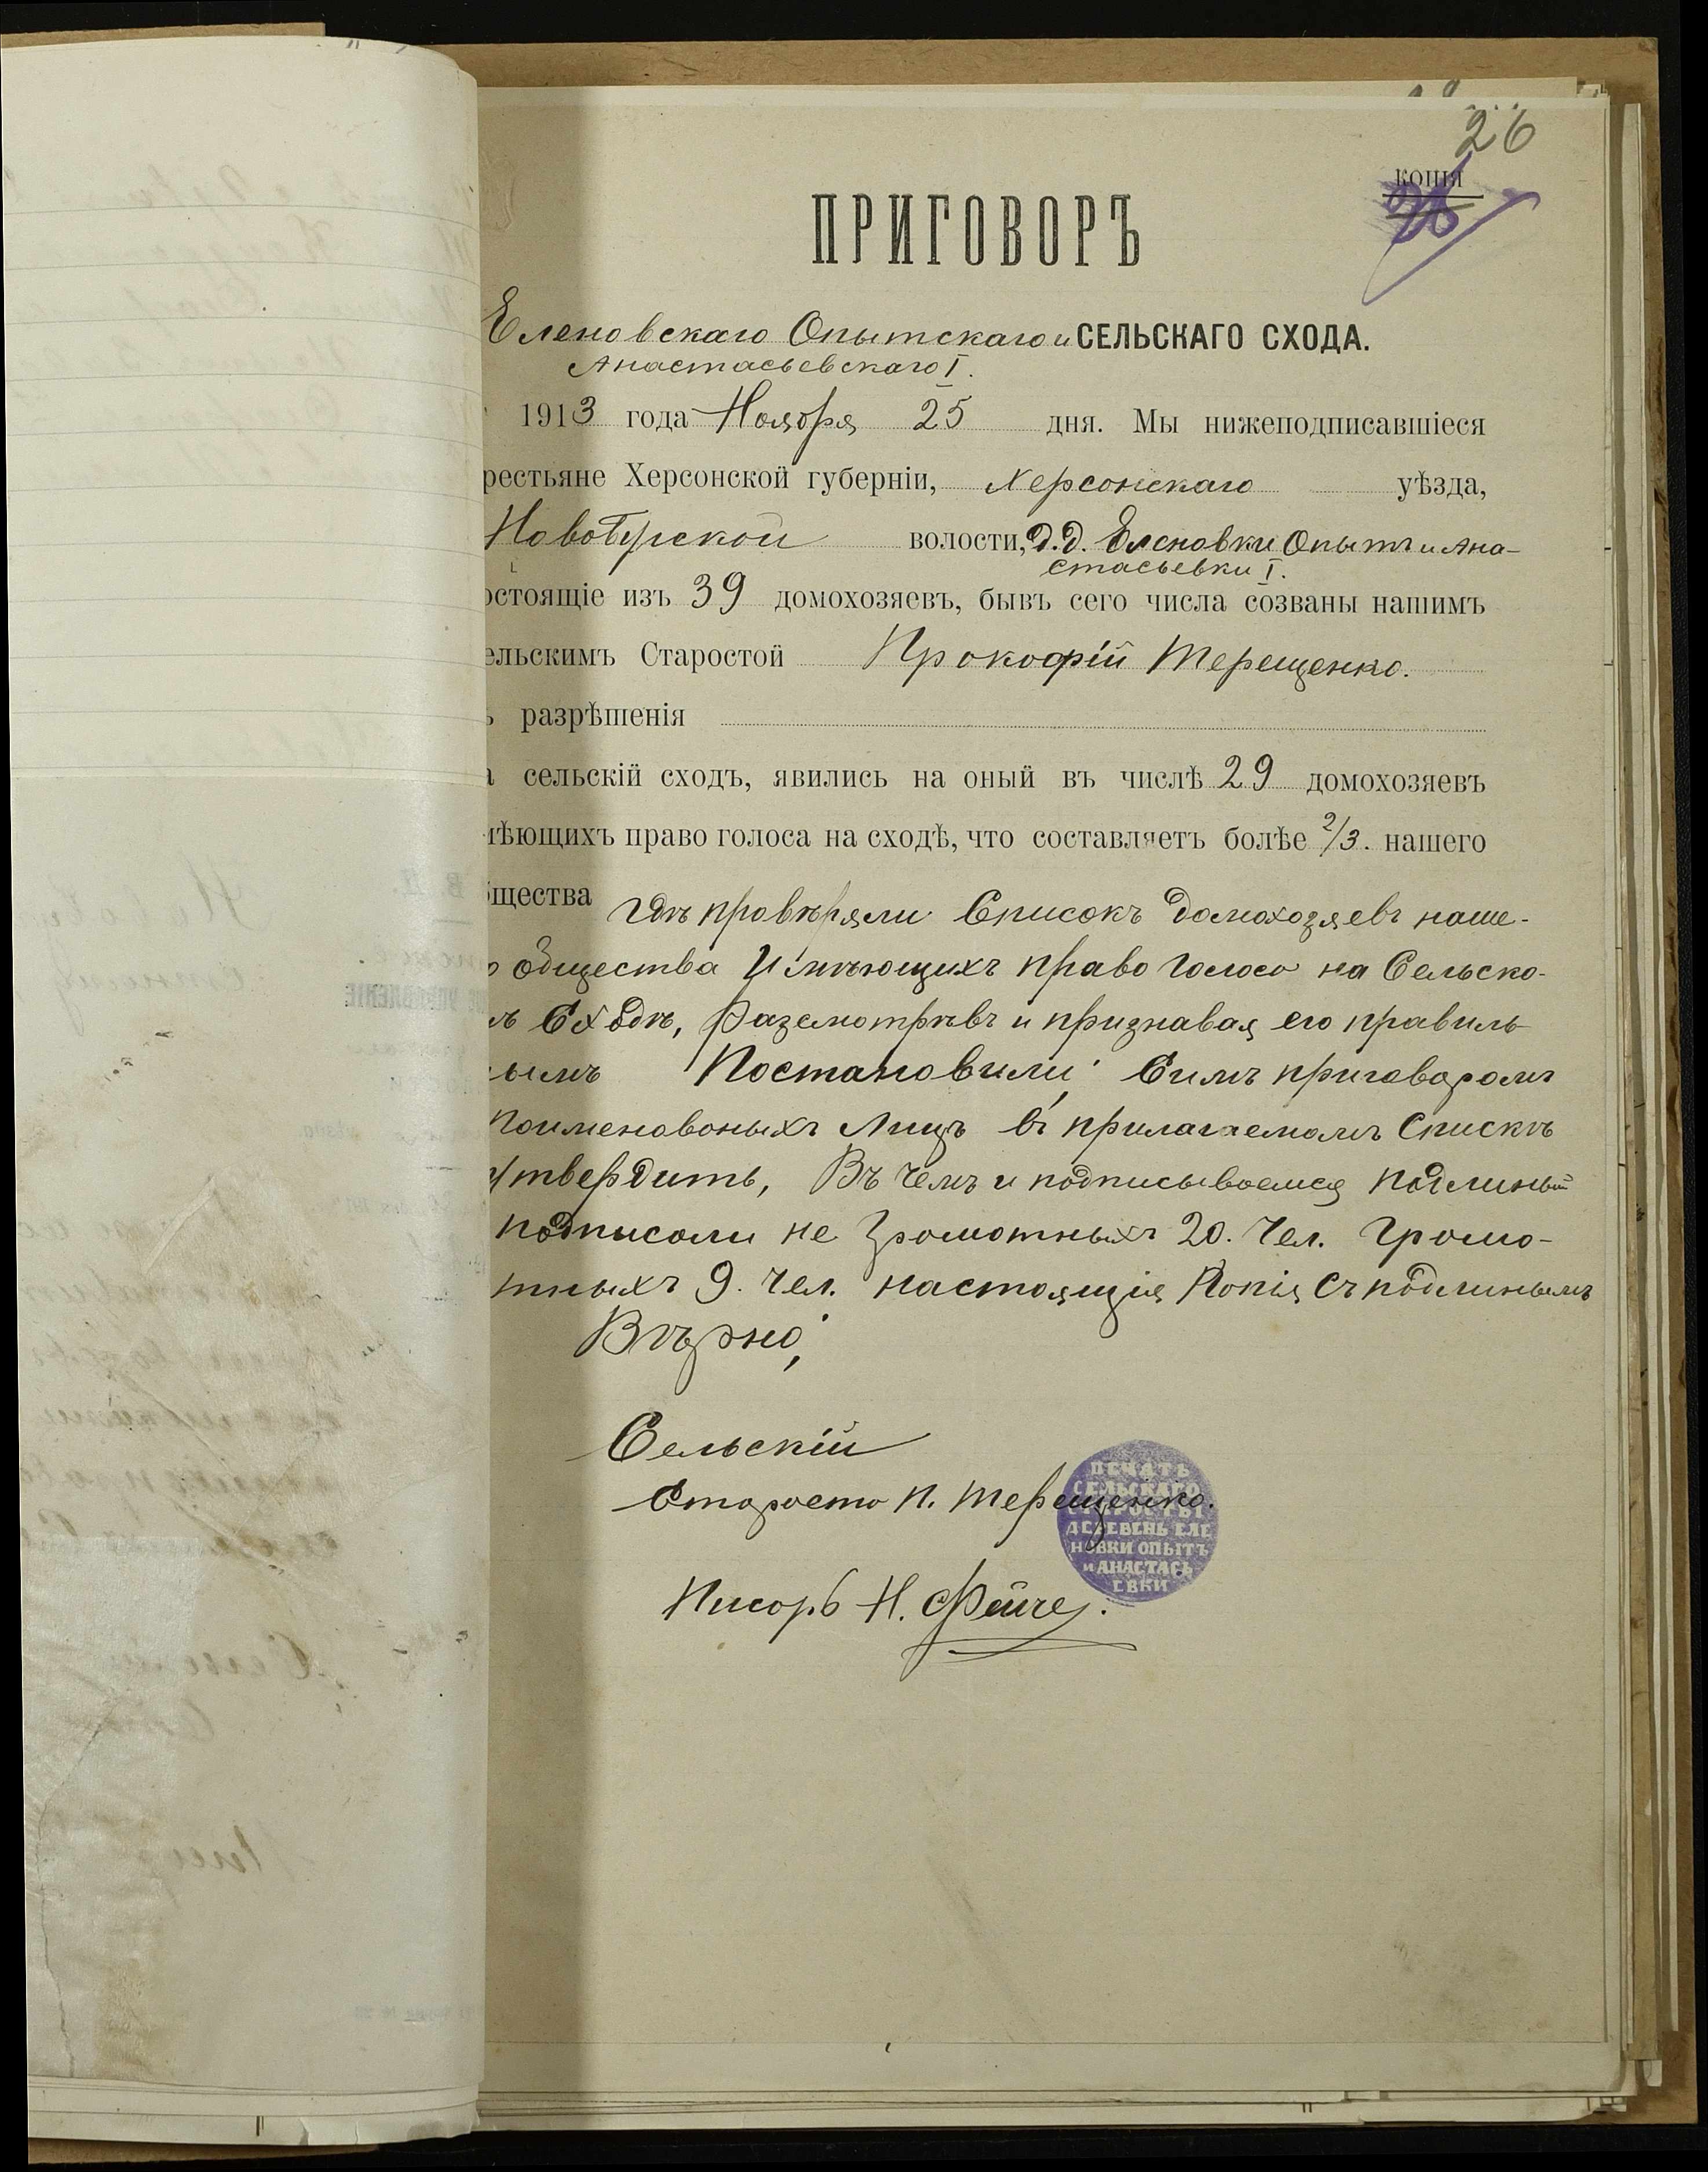 26
копія
ПРИГОВОРЪ
Еленовскаго Опытскаго и СЕЛЬСКАГО СХОДА.
Анастасьевскаго I.
1913 года Ноября 25 дня. Мы нижеподписавшіеся
рестьяне Херсонской губерніи, Херсонскаго уѣзда,
волости, д.д. Еленовки Опытъ и Ана-
стасьевки I.
остоящіе изъ 39 домохозяевъ, бывъ сего числа созваны нашимъ
ельскимъ Старостой Прокофій Терещенко.
ъ разрѣшенія
а сельскій сходъ, явились на оный въ числѣ 29 домохозяевъ
мѣющихъ право голоса на сходѣ, что составляетъ болѣе 2/3. нашего
бщества гдѣ провѣряли Списокъ домохозяевъ наше-
о общества Имѣющихъ право голоса на Сельско-
мъ Сходѣ, Разсмотрѣвъ и признавая его правиль-
нымъ Постановили; Симъ приговоромъ
Поименованыхъ Лицъ въ прилагаемомъ Спискѣ
утвердить, Въ чемъ и подписываемся подлиный
подписали не грамотныхъ 20. Чел. Грамо-
тныхъ 9. Чел. настоящія Копія съ подлинымъ
Вѣрно;
Сельскій
Староста П. Терещенко.
ПЕЧАТЬ
СЕЛЬСКАГО
СТАРОСТЫ
ДЕРЕВЕНЬ ЕЛЕ
НОВКИ ОПЫТЪ
и АНАСТАСЬ
ЕВКИ
Писарь Н.